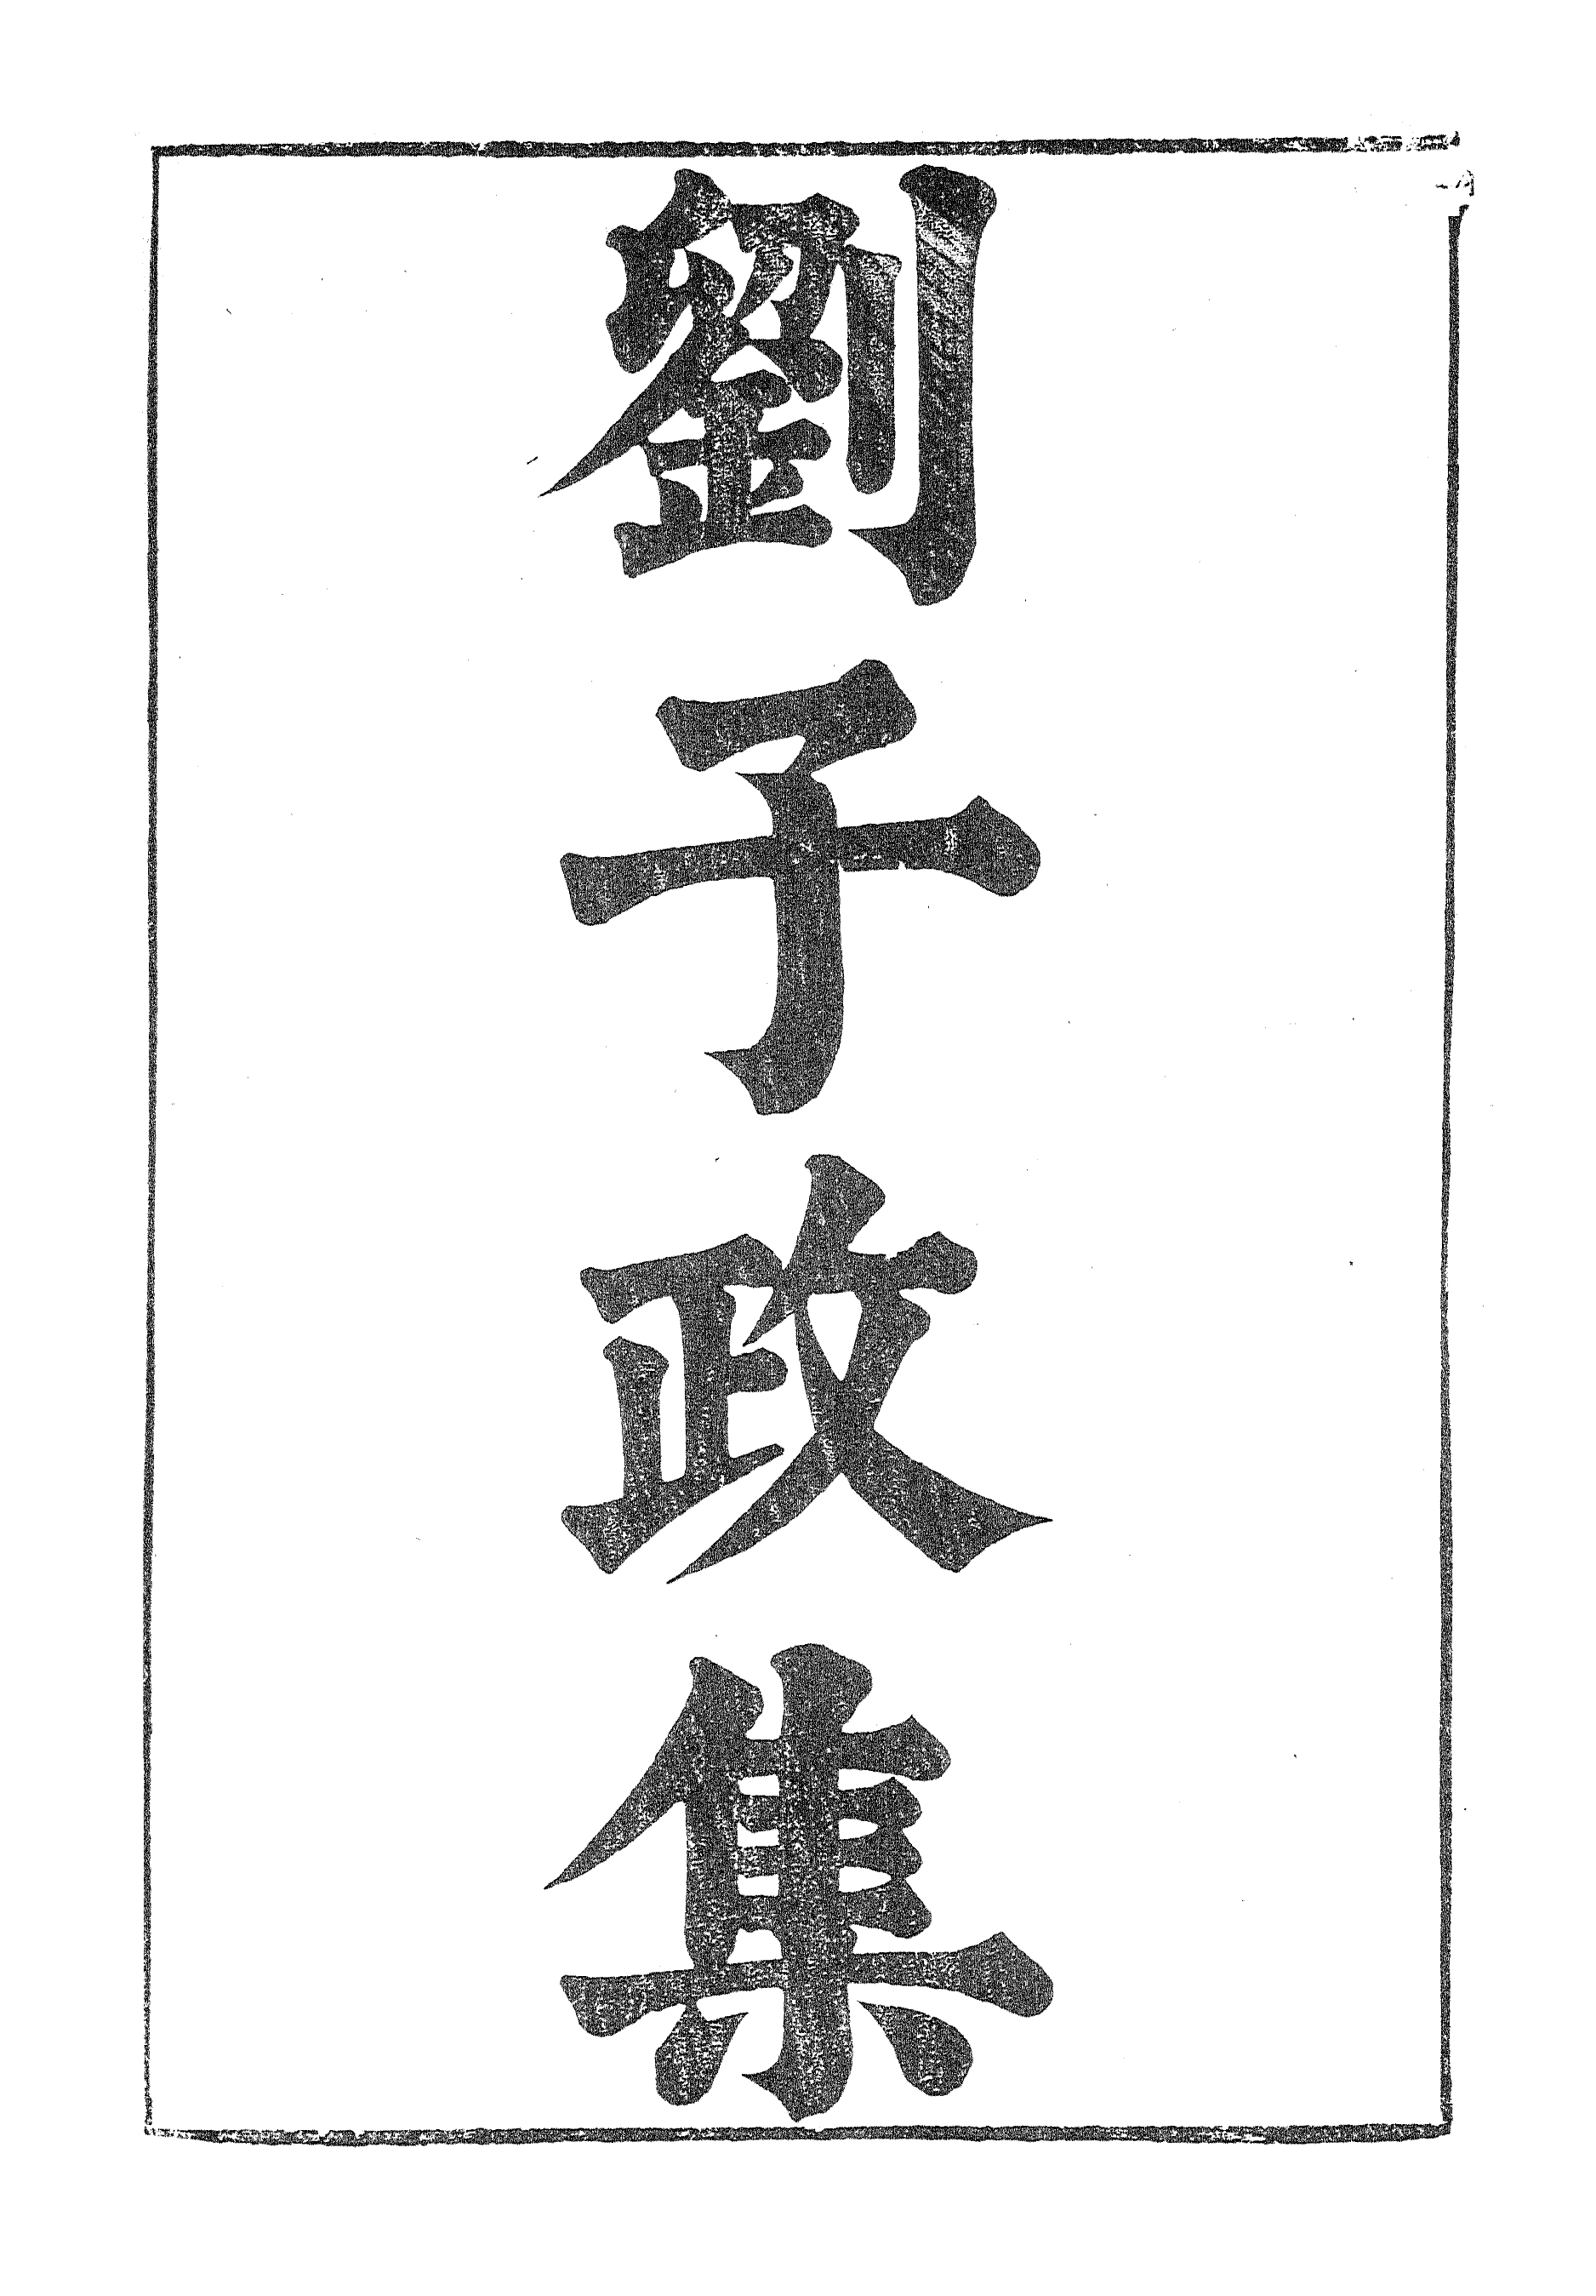 劉子政集